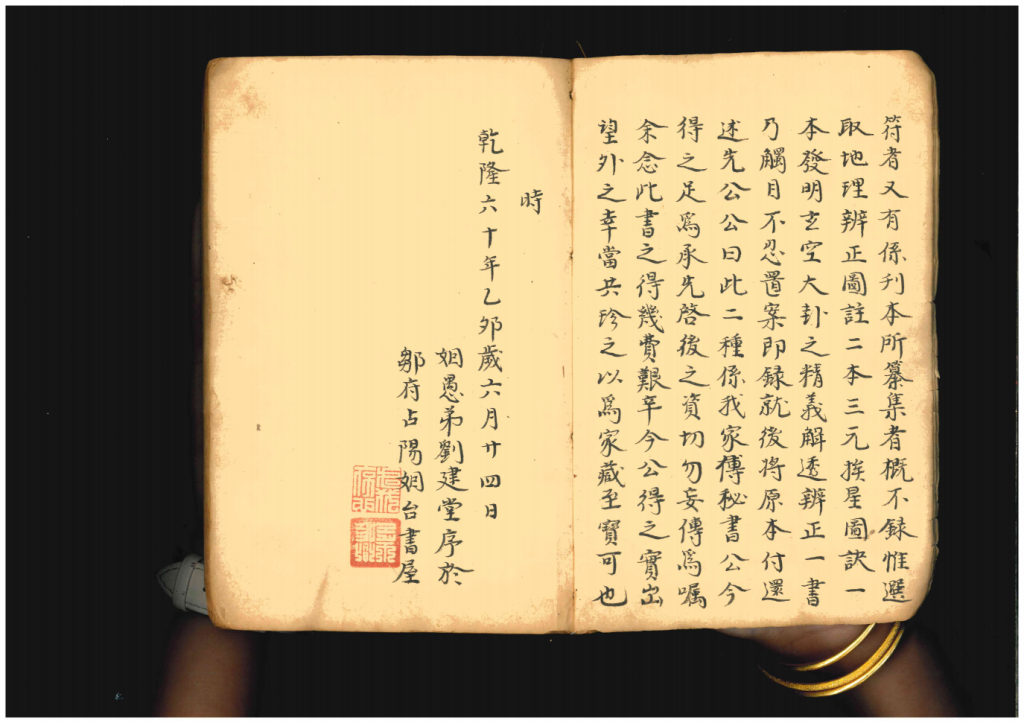 符者又有係刋本所纂集者槪不錄惟選
取地理辨正圖註二本三元挨星圖訣一
本發明玄空大卦之精義解透辨正一書
乃觸目不忍置案即録就後將原本付還
述先公公曰此二種係我家傳秘書公今
得之足爲承先啓後之資切勿妄傳爲囑
余念此書之得幾費艱辛今公得之實出
望外之幸當共珍之以爲家藏至寶可也
時
乾隆六十年乙夘歲六月廿四日
姻愚弟劉建堂序於
鄒府占陽姻台書屋